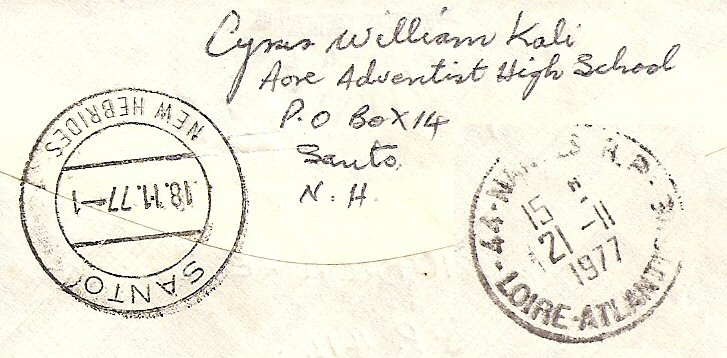 Cyrus William Kali
Aore Adventist High School
P.O Box 14
Santo,
N. H.
NEW HEBRIDES
18.11.77-1
SANTO
44-NANTES R.P.
15
21 -11
1977
LOIRE-ATLANTIQUE